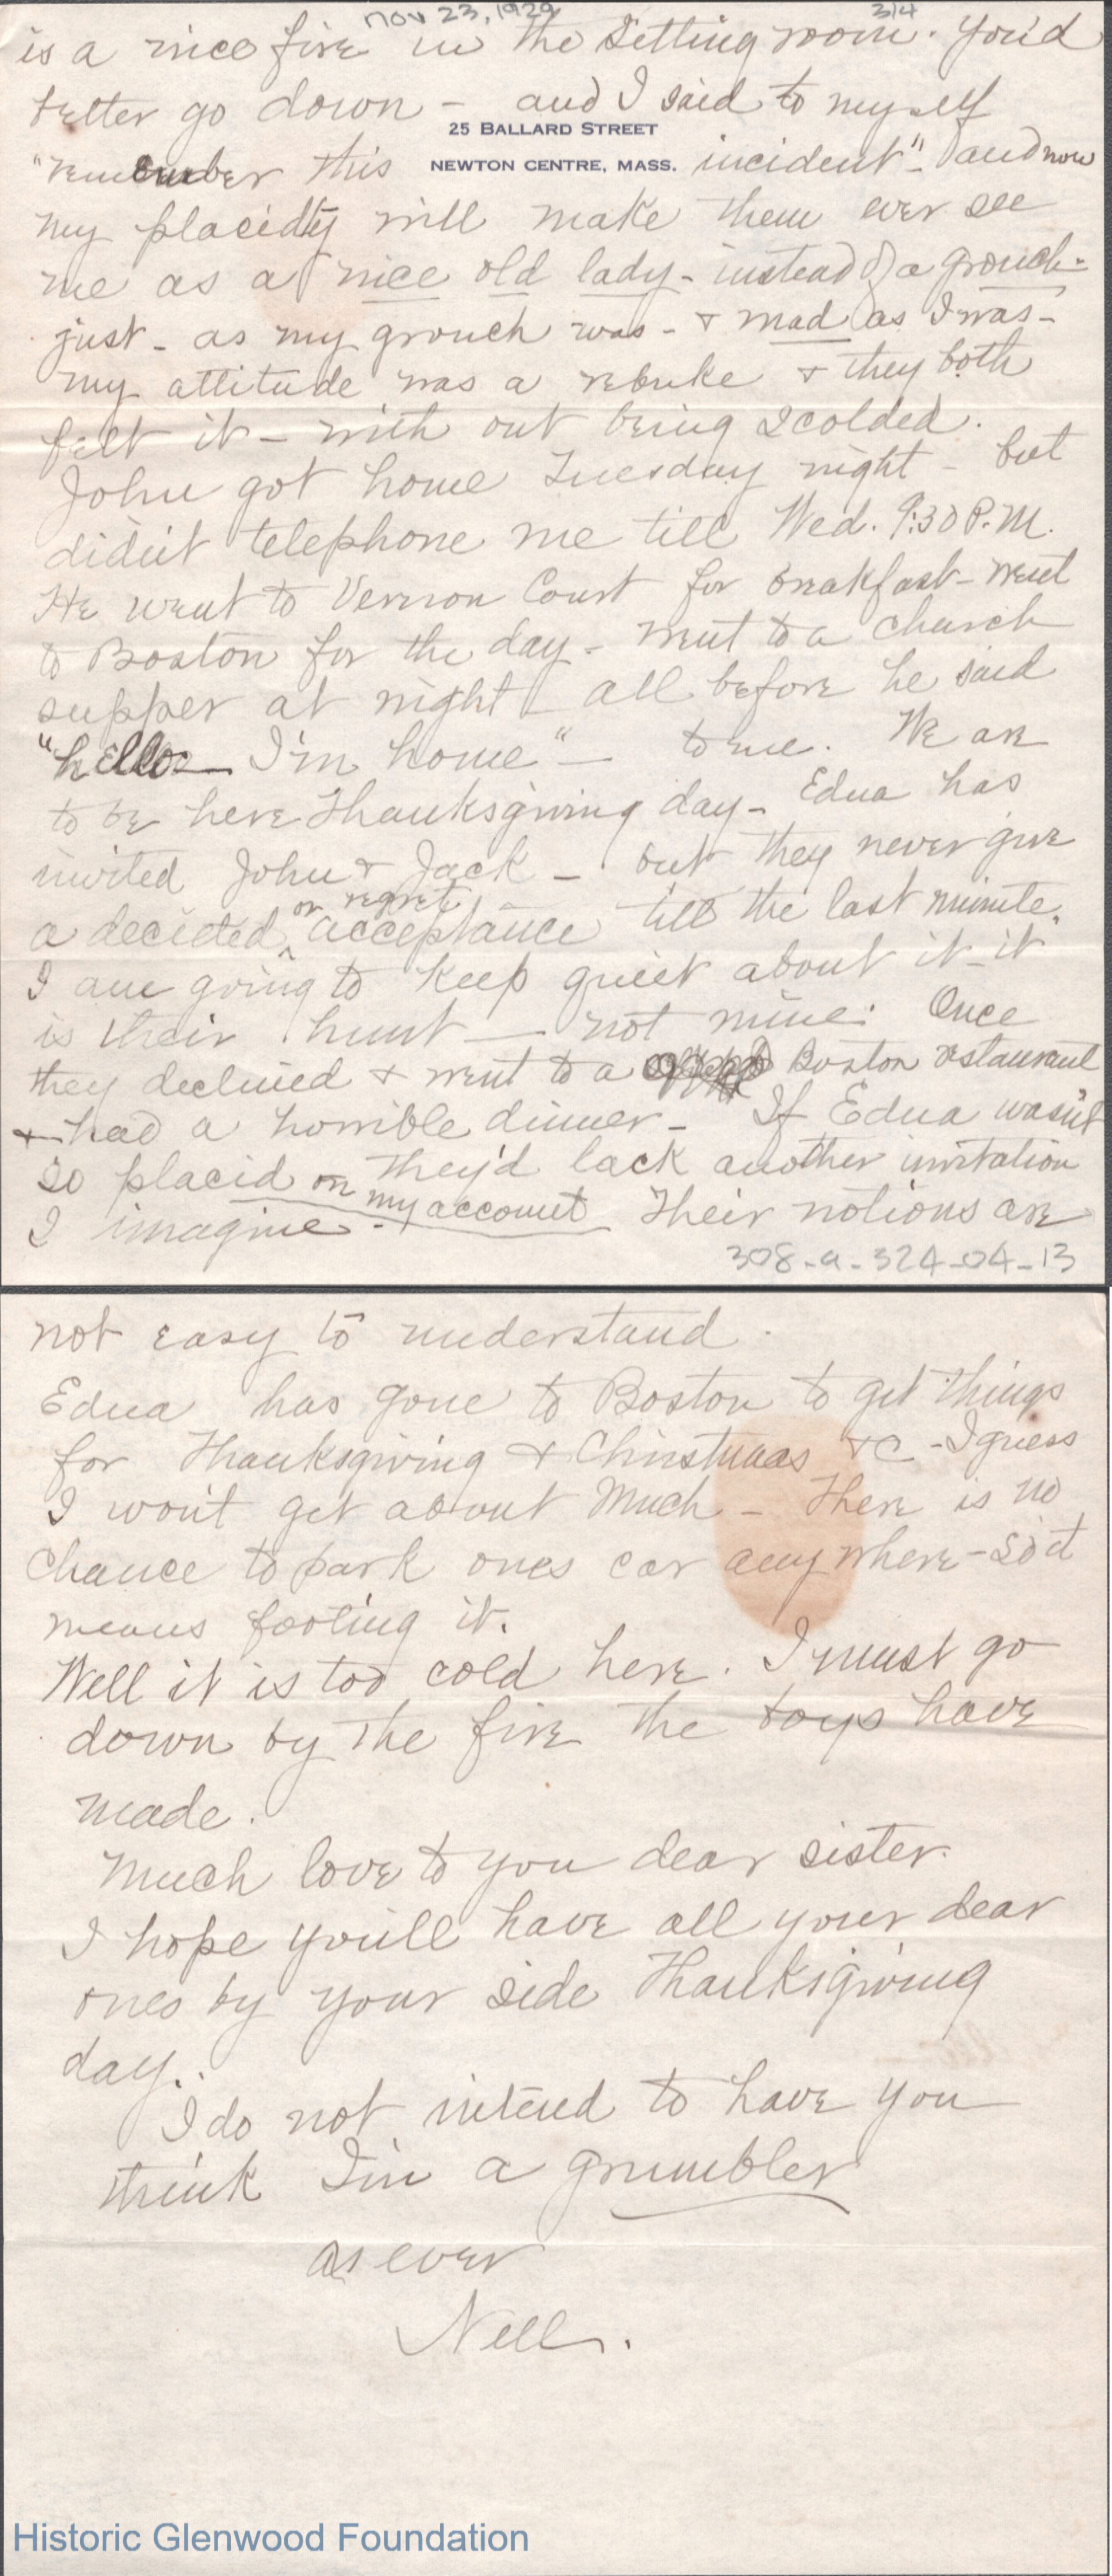 nov 23, 1929 3/4
is a nice fire in the sitting room. You'd
better go down - and I said to myself
25 BALLARD STREET
NEWTON CENTRE, MASS.
"remember this incident" - and now
my placidity will make them ever see
me as a nice old lady - instead of a grouch -
just - as my grouch was - & mad as I was -
my attitude was a rebuke & they both
felt it - with out being scolded.
John got home Tuesday night - but
didn't telephone me till Wed. 9:30 P.M.
He went to Vernon Court for breakfast - went
to Boston for the day - went to a church
supper at night - all before he said
"hello - I'm home" - to me. We are
to be here Thanksgiving day - Edna has
invited John & Jack - but they never give
or regret
a decided acceptance till the last minute.
I am going to keep quiet about it - it
is their hunt - not mine. Once
they declined & went to a Boston restaurant
& had a horrible dinner - If Edna wasn't
so placid on they'd lack another invitation
my account
I imagine - Their notions are
308-a-324-04-13
not easy to understand.
Edna has gone to Boston to get things
for Thanksgiving & Christmas &c - I guess
I won't get about much - There is no
chance to park ones car anywhere - so it
means footing it.
Well it is too cold here. I must go
down by the fire the boys have
made.
Much love to you dear sister.
I hope you'll have all your dear
ones by your side Thanksgiving
day.
I do not intend to have you
think I'm a grumbler
as ever
Nell.
Historic Glenwood Foundation